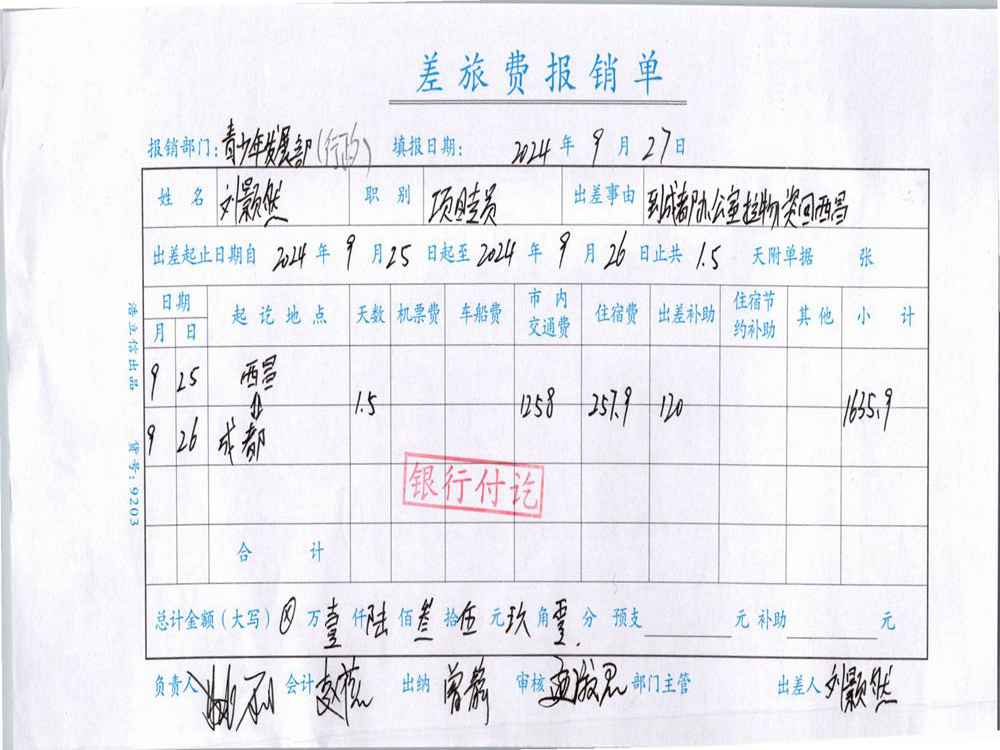 差旅费报销单
报销部门：青少年发展部（行政） 填报日期： 2024 年 9 月 27 日
姓名 刘颢然 职别 项目专员 出差事由 到成都办公室拉物资回西昌
出差起止日期自 2024 年 9 月 25 日起至 2024 年 9 月 26 日止共 1.5 天附单据 张
日期 起讫地点 天数 机票费 车船费 市内交通费 住宿费 出差补助 住宿节约补助 其他 小计
月 日
9 25 西昌
⇕ 1.5 1258 257.9 120 1635.9
9 26 成都
银行付讫
合计
总计金额（大写） ⊗ 万 壹 仟 陆 佰 叁 拾 伍 元 玖 角 零 分 预支 元 补助 元
负责人 会计 出纳 曾静 审核 部门主管 出差人 刘颢然
浩立信出品 货号：9203